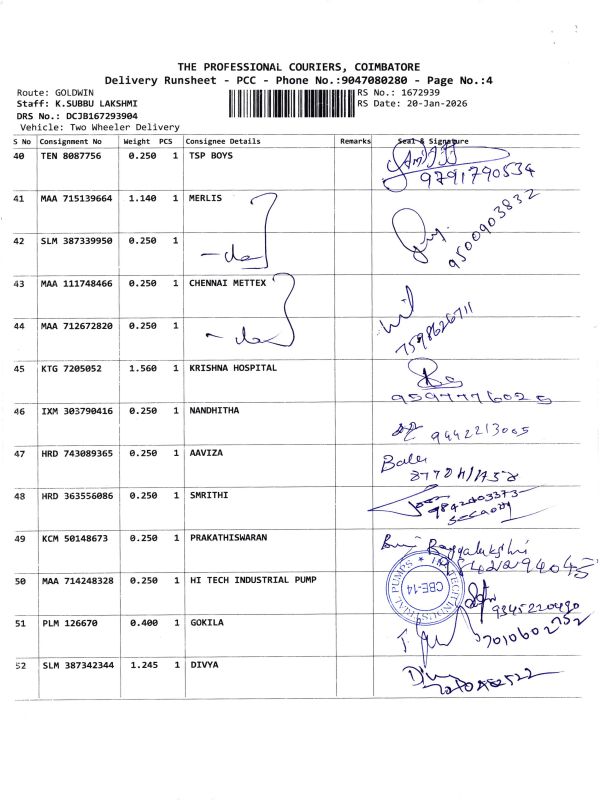 THE PROFESSIONAL COURIERS, COIMBATORE
Delivery Runsheet - PCC - Phone No.:9047080280 - Page No.:4
Route: GOLDWIN
Staff: K.SUBBU LAKSHMI
DRS No.: DCJB167293904
Vehicle: Two Wheeler Delivery
RS No.: 1672939
RS Date: 20-Jan-2026
S No Consignment No Weight PCS Consignee Details Remarks Seal & Signature
40 TEN 8087756 0.250 1 TSP BOYS
9791790534
41 MAA 715139664 1.140 1 MERLIS
9500903832
42 SLM 387339950 0.250 1 -do-
43 MAA 111748466 0.250 1 CHENNAI METTEX
44 MAA 712672820 0.250 1 -do-
7598626711
45 KTG 7205052 1.560 1 KRISHNA HOSPITAL
9597776025
46 IXM 303790416 0.250 1 NANDHITHA
9442213005
47 HRD 743089365 0.250 1 AAVIZA
48 HRD 363556086 0.250 1 SMRITHI
49 KCM 50148673 0.250 1 PRAKATHISWARAN
50 MAA 714248328 0.250 1 HI TECH INDUSTRIAL PUMP
CBE-14
51 PLM 126670 0.400 1 GOKILA
7010602752
52 SLM 387342344 1.245 1 DIVYA